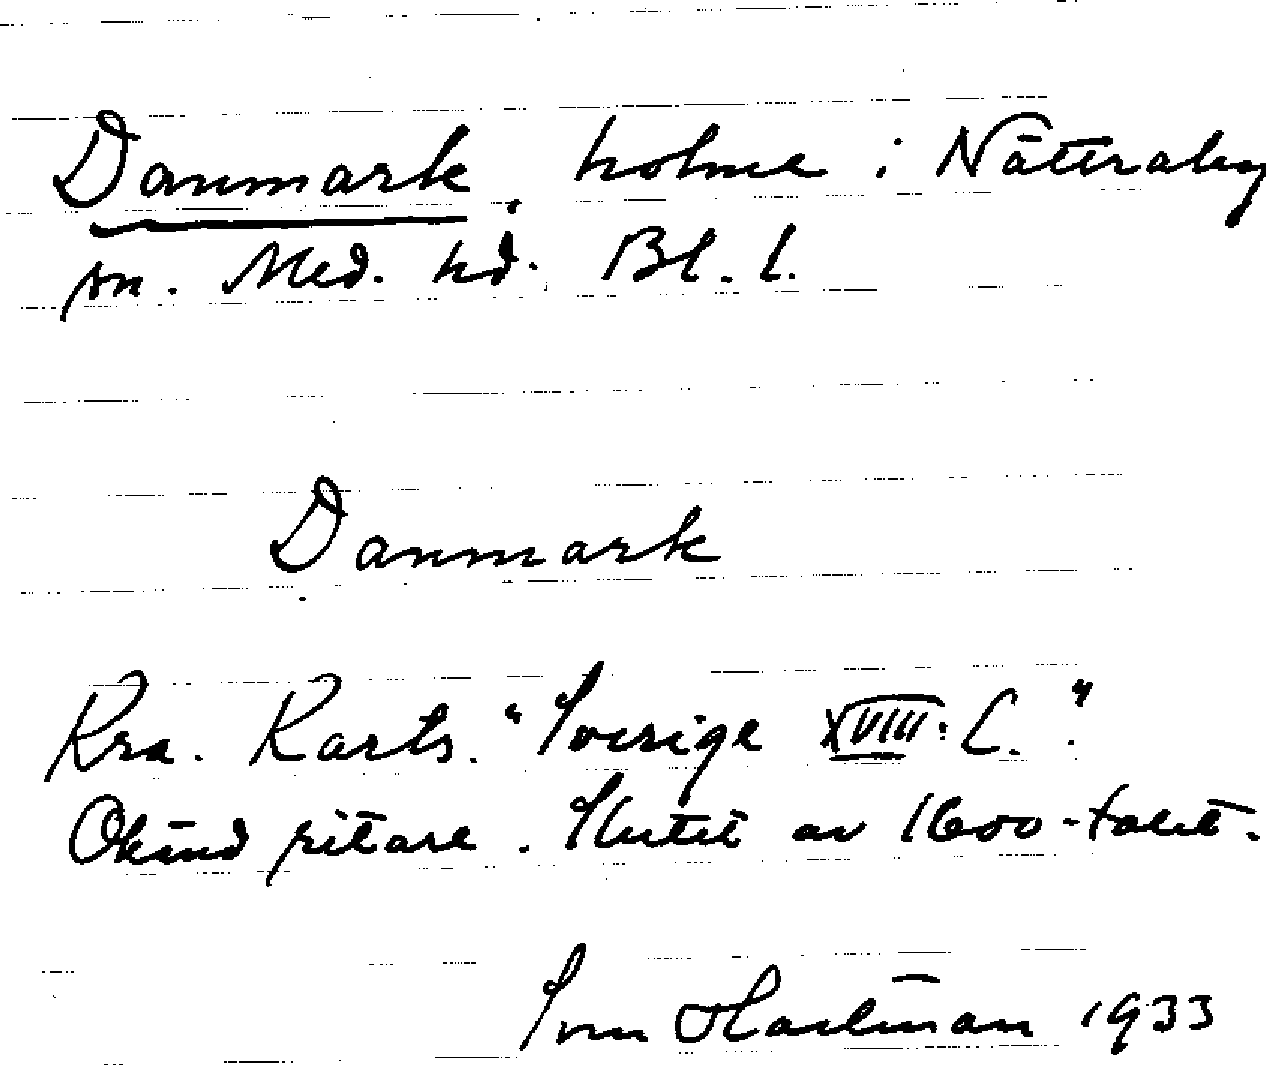 Danmark, holme i Nättraby
sn. Med. hd. Bl. l.
Danmark
Kra. Karts. "Sverige XVIII: C."
Okänd ritare. Slutet av 1600-talet.
Sven Hartman 1933